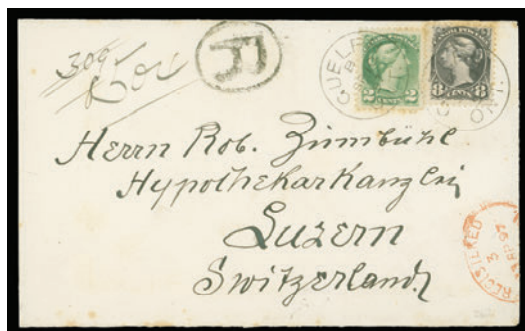 309
R
GUELPH
CANADA POSTAGE
2 CENTS 2
8 CENTS 8
ONT.
Herrn Rob. Zimbühl
Hypothekarkanzlei
Luzern
Switzerland
REGISTERED
3
97